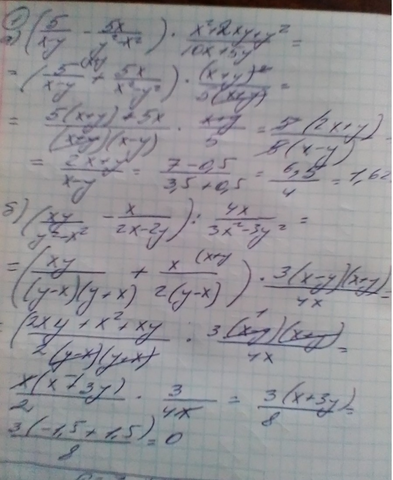 ① а) (5/(x-y) - 5x/(y²-x²)) · (x²+2xy+y²)/(10x+5y) =
= (5/(x-y) (x+y) + 5x/(x²-y²)) · (x+y)²/(5(x+y)) =
= (5(x+y)+5x)/((x+y)(x-y)) · (x+y)/5 = 5(2x+y)/(5(x-y))
= (2x+y)/(x-y) = (7-0,5)/(3,5+0,5) = 6,5/4 = 1,62
б) (xy/(y²-x²) - x/(2x-2y)) : 4x/(3x²-3y²) =
= (xy/((y-x)(y+x)) + x/(2(y-x)) (x+y) · 3(x-y)(x+y)/4x =
= (2xy+x²+xy)/(2(y-x)(y+x)) · 3(x-y)(x+y)/4x =
x(x+3y)/2 · 3/4x = 3(x+3y)/8 =
3(-1,5+1,5)/8 = 0